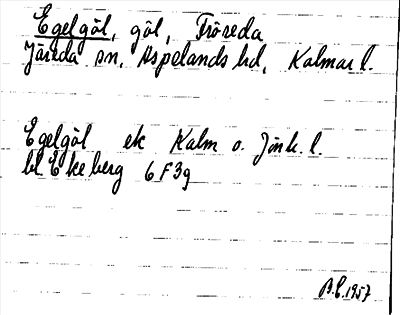 Egelgöl, göl, Fröreda
Järeda sn, Aspelands hd, Kalmar l.
Egelgöl ek Kalm o. Jönk. l.
bl Ekeberg 6F3g
1957